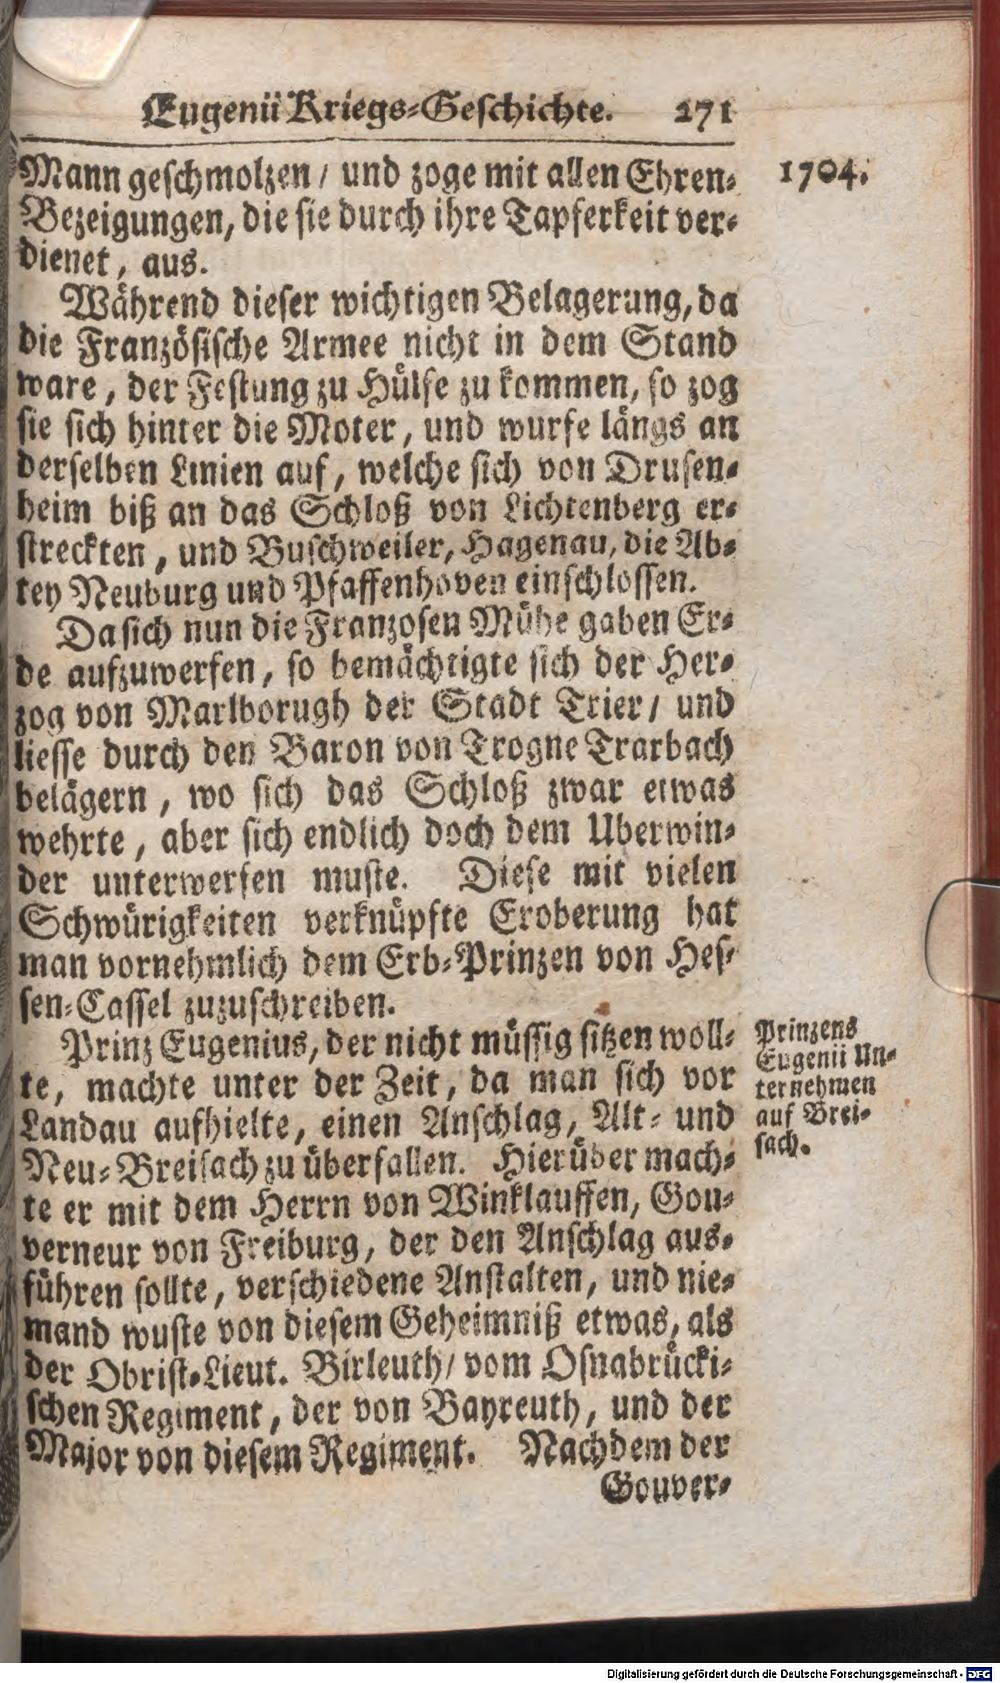 Eugenii Kriegs-Geschichte. 271
Mann geschmolzen / und zoge mit allen Ehren-
Bezeigungen, die sie durch ihre Tapferkeit ver-
dienet, aus.
1704.
Während dieser wichtigen Belagerung, da
die Französische Armee nicht in dem Stand
ware, der Festung zu Hülfe zu kommen, so zog
sie sich hinter die Moter, und wurfe längs an
derselben Linien auf, welche sich von Drusen-
heim biß an das Schloß von Lichtenberg er-
streckten, und Buschweiler, Hagenau, die Ab-
tey Neuburg und Pfaffenhoven einschlossen.
Da sich nun die Franzosen Mühe gaben Er-
de aufzuwerfen, so bemächtigte sich der Her-
zog von Marlborugh der Stadt Trier / und
liesse durch den Baron von Trogne Trarbach
belägern, wo sich das Schloß zwar etwas
wehrte, aber sich endlich doch dem Uberwin-
der unterwerfen muste. Diese mit vielen
Schwürigkeiten verknüpfte Eroberung hat
man vornehmlich dem Erb-Prinzen von Hes-
sen-Cassel zuzuschreiben.
Prinz Eugenius, der nicht müssig sitzen woll-
te, machte unter der Zeit, da man sich vor
Landau aufhielte, einen Anschlag, Alt- und
Neu-Breisach zu überfallen. Hierüber mach-
te er mit dem Herrn von Winklauffen, Gou-
verneur von Freiburg, der den Anschlag aus-
führen sollte, verschiedene Anstalten, und nie-
mand wuste von diesem Geheimniß etwas, als
der Obrist-Lieut. Birleuth / vom Osnabrücki-
schen Regiment, der von Bayreuth, und der
Major von diesem Regiment. Nachdem der
Gouver-
Prinzens
Eugenii Un-
ternehmen
auf Brei-
sach.
Digitalisierung gefördert durch die Deutsche Forschungsgemeinschaft - DFG